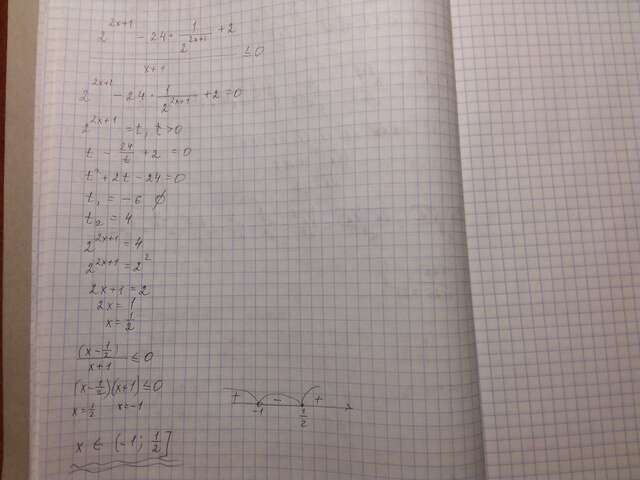 2^{2x+1} - 24 · \frac{1}{2^{2x+1}} + 2
x+1 ≤ 0
2^{2x+1} - 24 · \frac{1}{2^{2x+1}} + 2 = 0
2^{2x+1} = t, t > 0
t - \frac{24}{t} + 2 = 0
t² + 2t - 24 = 0
t₁ = -6 ∅
t₂ = 4
2^{2x+1} = 4
2^{2x+1} = 2²
2x+1 = 2
2x = 1
x = \frac{1}{2}
\frac{(x - \frac{1}{2})}{x+1} ≤ 0
(x - \frac{1}{2})(x+1) ≤ 0
x = \frac{1}{2} x = -1
+ - +
-1 \frac{1}{2}
x ∈ (-1; \frac{1}{2}]